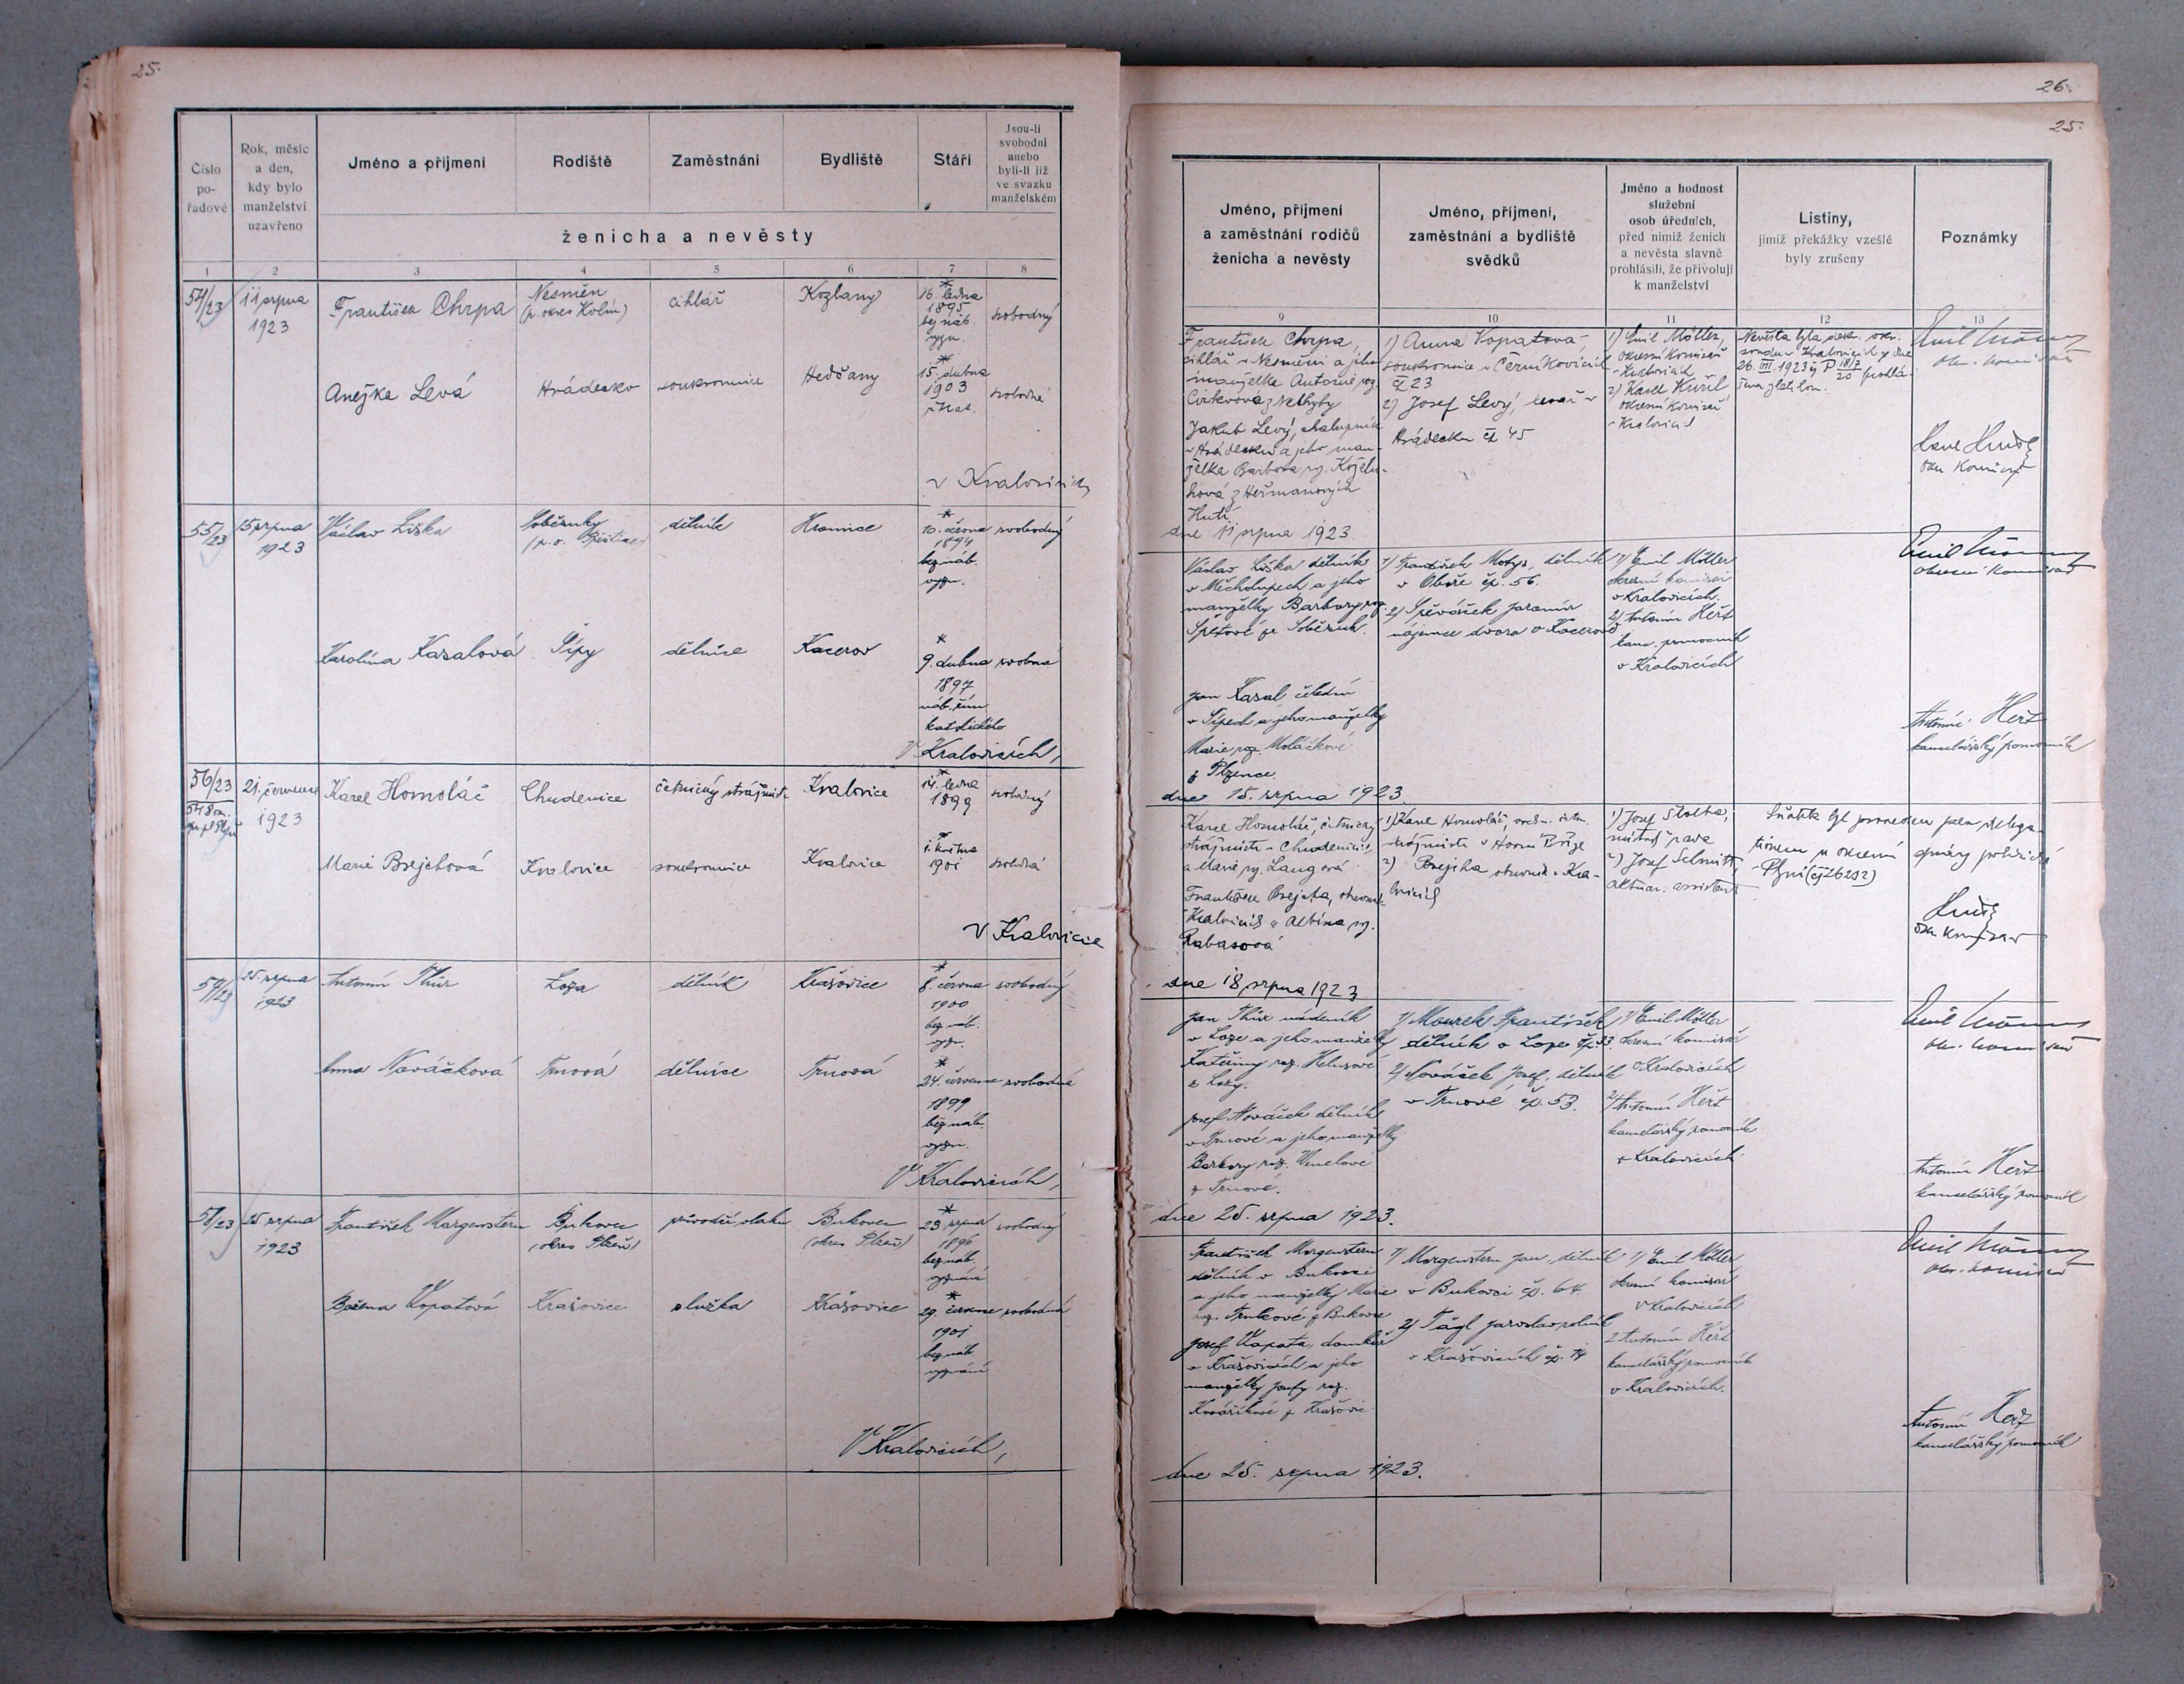 25.
Číslo
po-
řadové
Rok, měsíc
a den,
kdy bylo
manželství
uzavřeno
Jméno a příjmení
Rodiště
Zaměstnání
Bydliště
Stáří
Jsou-li
svobodni
anebo
byli-li již
ve svazku
manželském
ženicha a nevěsty
1 2 3 4 5 6 7 8
54/23
11 srpna
1923
František Chrpa
Nesměn
(p. okres Kolín)
cihlář
Kozlany
*
16. ledna
1895
bez náb.
vyzn.
svobodný
Anežka Levá
Hrádecko
soukromnice
Hedčany
*
15. dubna
1903
svobodná
v Kralovicích,
55/23
15 srpna
1923
Václav Liška
Soběsuky
dělník
Hromnice
*
10. června
1894
bez náb.
vyzn.
svobodný
Karolina Kasalová
Šípy
dělnice
Kacerov
*
9. dubna
1897
náb. řím.
katolického
svobodná
V Kralovicích,
56/23
21. července
1923
Karel Homoláč
Chudenice
četnický strážmistr
Kralovice
*
14. ledna
1899
svobodný
Marie Brejchová
Kralovice
soukromnice
Kralovice
*
1. května
1901
svobodná
V Kralovicích
57/23
25. srpna
1923
Antonín Thür
Loza
dělník
Krašovice
*
8. června
1900
bez náb.
vyzn.
svobodný
Anna Nováčková
Trnová
dělnice
Trnová
*
24. července
1899
bez náb.
vyzn.
svobodná
V Kralovicích,
58/23
25. srpna
1923
František Morgenstern
Bukovec
(okres Plzeň)
průvodčí vlaku
Bukovec
(okres Plzeň)
*
23 srpna
1896
bez náb.
vyznání
svobodný
Božena Kopatová
Krašovice
služka
Krašovice
*
29. července
1901
bez náb.
vyznání
svobodná
V Kralovicích,
26.
25.
Jméno, příjmení
a zaměstnání rodičů
ženicha a nevěsty
Jméno, příjmení,
zaměstnání a bydliště
svědků
Jméno a hodnost
služební
osob úředních,
před nimiž ženich
a nevěsta slavně
prohlásili, že přivolují
k manželství
Listiny,
jimiž překážky vzešlé
byly zrušeny
Poznámky
9 10 11 12 13
František Chrpa,
cihlář v Nesměni a jeho
manželka Antonie roz.
Jakub Levý, chalupník
v Hrádecku a jeho man-
želka Barbora, roz. Koželu-
hová z Heřmanových
Hutí
dne 11 srpna 1923.
1) Anna Kopatová
soukromnice v Černíkovicích
čp 23
2) Josef Levý, kovář v
Hrádecku čp 45
1) Emil Möller,
okresní komisař
v Kralovicích
2) Karel Kudl
okresní komisař
v Kralovicích
Nevěsta byla dekr. okr.
soudu v Kralovicích ze dne
26. VII 1923 čj P 18/7
20
Emil Möller
okr. komisař
okr. komisař
Václav Liška dělník
v Měcholupech a jeho
manželky Barbory roz.
Špetové ze Soběsuk.
Jan Kasal, čeledín
v Šípech a jeho manželky
Marie roz. Moláčkové
z Plzence.
dne 15. srpna 1923.
1) František Motys, dělník
v Oboře čp. 56.
2) Spěváček Jaromír
nájemce dvora v Kacerově
1) Emil Möller
okresní komisař
v Kralovicích.
2) Antonín Heřt
kanc. pomocník
v Kralovicích
Emil Möller
okresní komisař
Antonín Heřt
kancelářský pomocník
Karel Homoláč, četnický
strážmistr v Chudenicích
a Marie roz. Langová
František Brejcha, obuvník
v Kralovicích a Albína roz.
Rabasová
dne 18 srpna 1923
1) Karel Homoláč, vrch. četn.
strážmistr v Horní Bříze
2) Brejcha obuvník v Kra-
lovicích
1) Josef
2) Josef Schmitt,
aktuár. assistent
Sňatek byl proveden
správy politické
v Plzni
okr. komisař
Jan Thür nádeník
v Loze a jeho manželky
Kateřiny roz. Helusové
z Lozy.
Josef Nováček dělník
v Trnové a jeho manželky
Barbory roz.
z Trnové.
dne 25. srpna 1923.
1) Mourek František
dělník v Loze čp. 33.
2) Nováček Josef, dělník
v Trnové čp. 53.
1) Emil Möller
okresní komisař
v Kralovicích
2) Antonín Heřt
kancelářský pomocník
v Kralovicích
Emil Möller
okr. komisař
Antonín Heřt
kancelářský pomocník
František Morgenstern
dělník v Bukovci
a jeho manželky Marie
roz. Trnkové z Bukovce
Josef Kopata, domkář
v Krašovicích a jeho
manželky Josefy roz.
Kováříkové z Krašovic
dne 25. srpna 1923.
1) Morgenstern Jan, dělník
v Bukovci čp. 64.
2) Tägl Jaroslav rolník
v Krašovicích čp. 14
1) Emil Möller
okresní komisař
v Kralovicích
2 Antonín Heřt
kancelářský pomocník
v Kralovicích.
Emil Möller
okr. komisař
Antonín Heřt
kancelářský pomocník